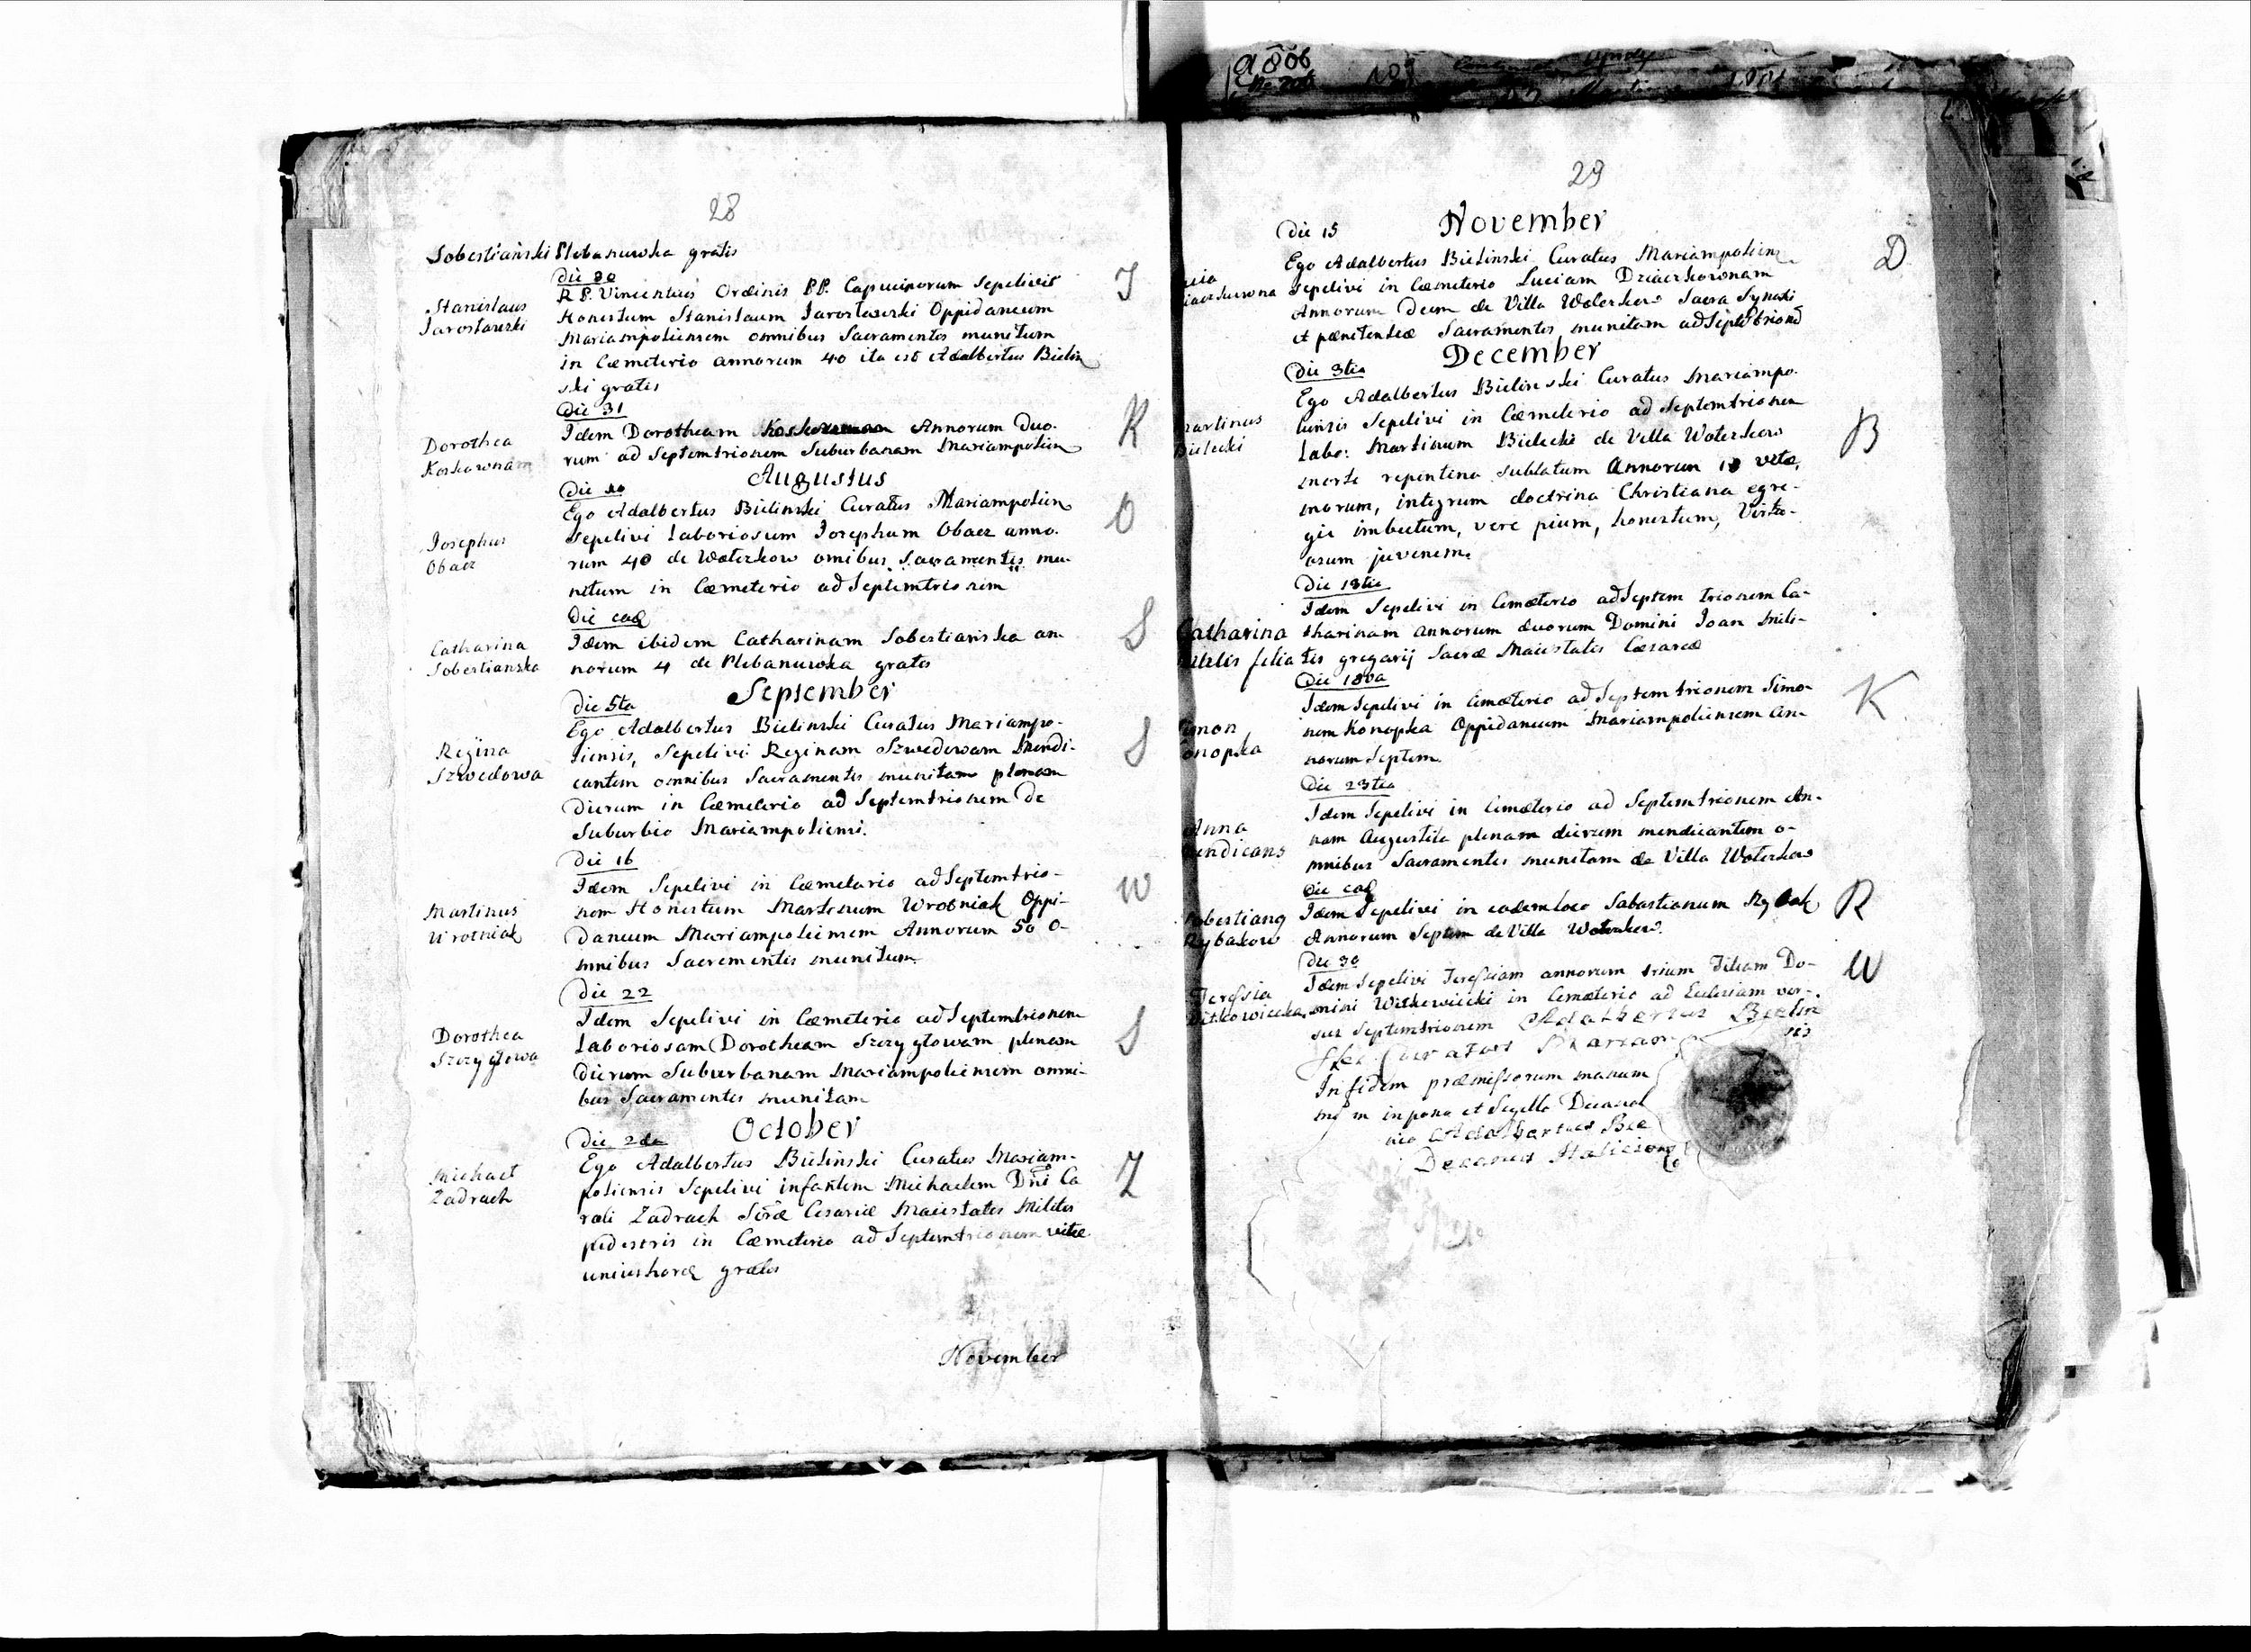 28
Sobestiański Plebanuwka gratis
Die 30
R. P. Vincentius Ordinis PP. Capucinorum Sepelivit
Stanislaus
Jarosławski
Honestum Stanislaum Jarosławski Oppidaneum
Mariampoliensem omnibus Sacramentis munitum
in Cœmeterio annorum 40 ita est Adalbertus Bielin
ski gratis
J
Die 31
Dorothea
Koskownam
Idem Dorotheam Annorum duo-
rum ad Septemtrionem Suburbanam Mariampolien
K
Augustus
Die
Josephus
Obacz
Ego Adalbertus Bielinski Curatus Mariampolien
Sepelivi Laboriosum Josephum Obacz anno-
rum 40 de Wołczkow omnibus Sacramentis mu-
nitum in Cœmeterio ad Septemtrionem
O
Die eadē
Catharina
Sobestianska
Idem ibidem Catharinam Sobestianska an-
norum 4 de Plebanuwka gratis
S
September
Die 5ta
Regina
Szwedowa
Ego Adalbertus Bielinski Curatus Mariampo-
liensis, Sepelivi Reginam Szwedowam Mendi-
cantem omnibus Sacramentis munitam plenam
Dierum in Cœmeterio ad Septemtrionem de
Suburbio Mariampoliensi.
S
Die 16
Martinus
Wrotniak
Idem Sepelivi in Cœmeterio ad Septemtrio-
nem Honestum Martinum Wrotniak Oppi-
daneum Mariampoliensem Annorum 50 o-
mnibus Sacrementis munitum
W
Die 22
Dorothea
Szczygłowa
Idem Sepelivi in Cœmeterio ad Septemtrionem
Laboriosam Dorotheam Szczygłowam plenam
Dierum Suburbanam Mariampoliensem omni-
bus Sacramentis munitam
S
October
Die 2da
Michael
Zadrach
Ego Adalbertus Bielinski Curatus Mariam-
poliensis Sepelivi infantem Michaelem Dni Ca
roli Zadrach Scræ Cesariæ Maiestatis Militis
pedestris in Cœmeterio ad Septemtrionem vitæ
unius horæ gratis
Z
November
29
November
Die 15
Ego Adalbertus Bielinski Curatus Mariampolien
Sepelivi in Cœmeterio Luciam Dziaczkownam
Annorum Decem de Villa Wołczkow Sacra Synaxi
et pænitentiæ Sacramentis munitam ad Septētrionē
D
December
Die 3tia
artinus
ielecki
Ego Adalbertus Bielinski Curatus Mariampo-
liensis Sepelivi in Cœmeterio ad Septemtrionem
Labo: Martinum Bielecki de Villa Wołczkow
morte repentina sublatum Annorum vitæ,
morum, integrum doctrina Christiana egre-
gie imbutum, vere pium, honestum, Virtu-
osum juvenem.
B
Die 13tia
Catharina
Militis filia
Idem Sepelivi in Cemœterio ad Septemtrionem Ca-
tharinam annorum duorum Domini Joan Mili-
tis gregarij Sacræ Maiestatis Cæsareæ
Die 18va
imon
onopka
Idem Sepelivi in Cemœterio ad Septemtrionem Simo-
nem Konopka Oppidaneum Mariampoliensem an-
norum Septem
K
Die 23tia
Anna
endicans
Idem Sepelivi in Cemœterio ad Septemtrionem An-
nam Augustila plenam dierum mendicantem o-
mnibus Sacramentis munitam de Villa Wołczkow
Die eadē
obestiang
Rybakow
Idem Sepelivi in eodem loco Sabastianum Rybak
Annorum Septem de Villa Wołczkow.
R
Die 30
Teressia
Witkowiecka
Idem Sepelivi Teressiam annorum trium Filiam Do-
mini Witkowiecki in Cemœterio ad Eclesiam ver-
sus Septemtrionem Adalbertus Bielin
ski Curatus Mariam
W
In fidem præmissorum manum
meam inpono et Sigillo Decanal
Adalbertus Bie
Decanus Haliciens